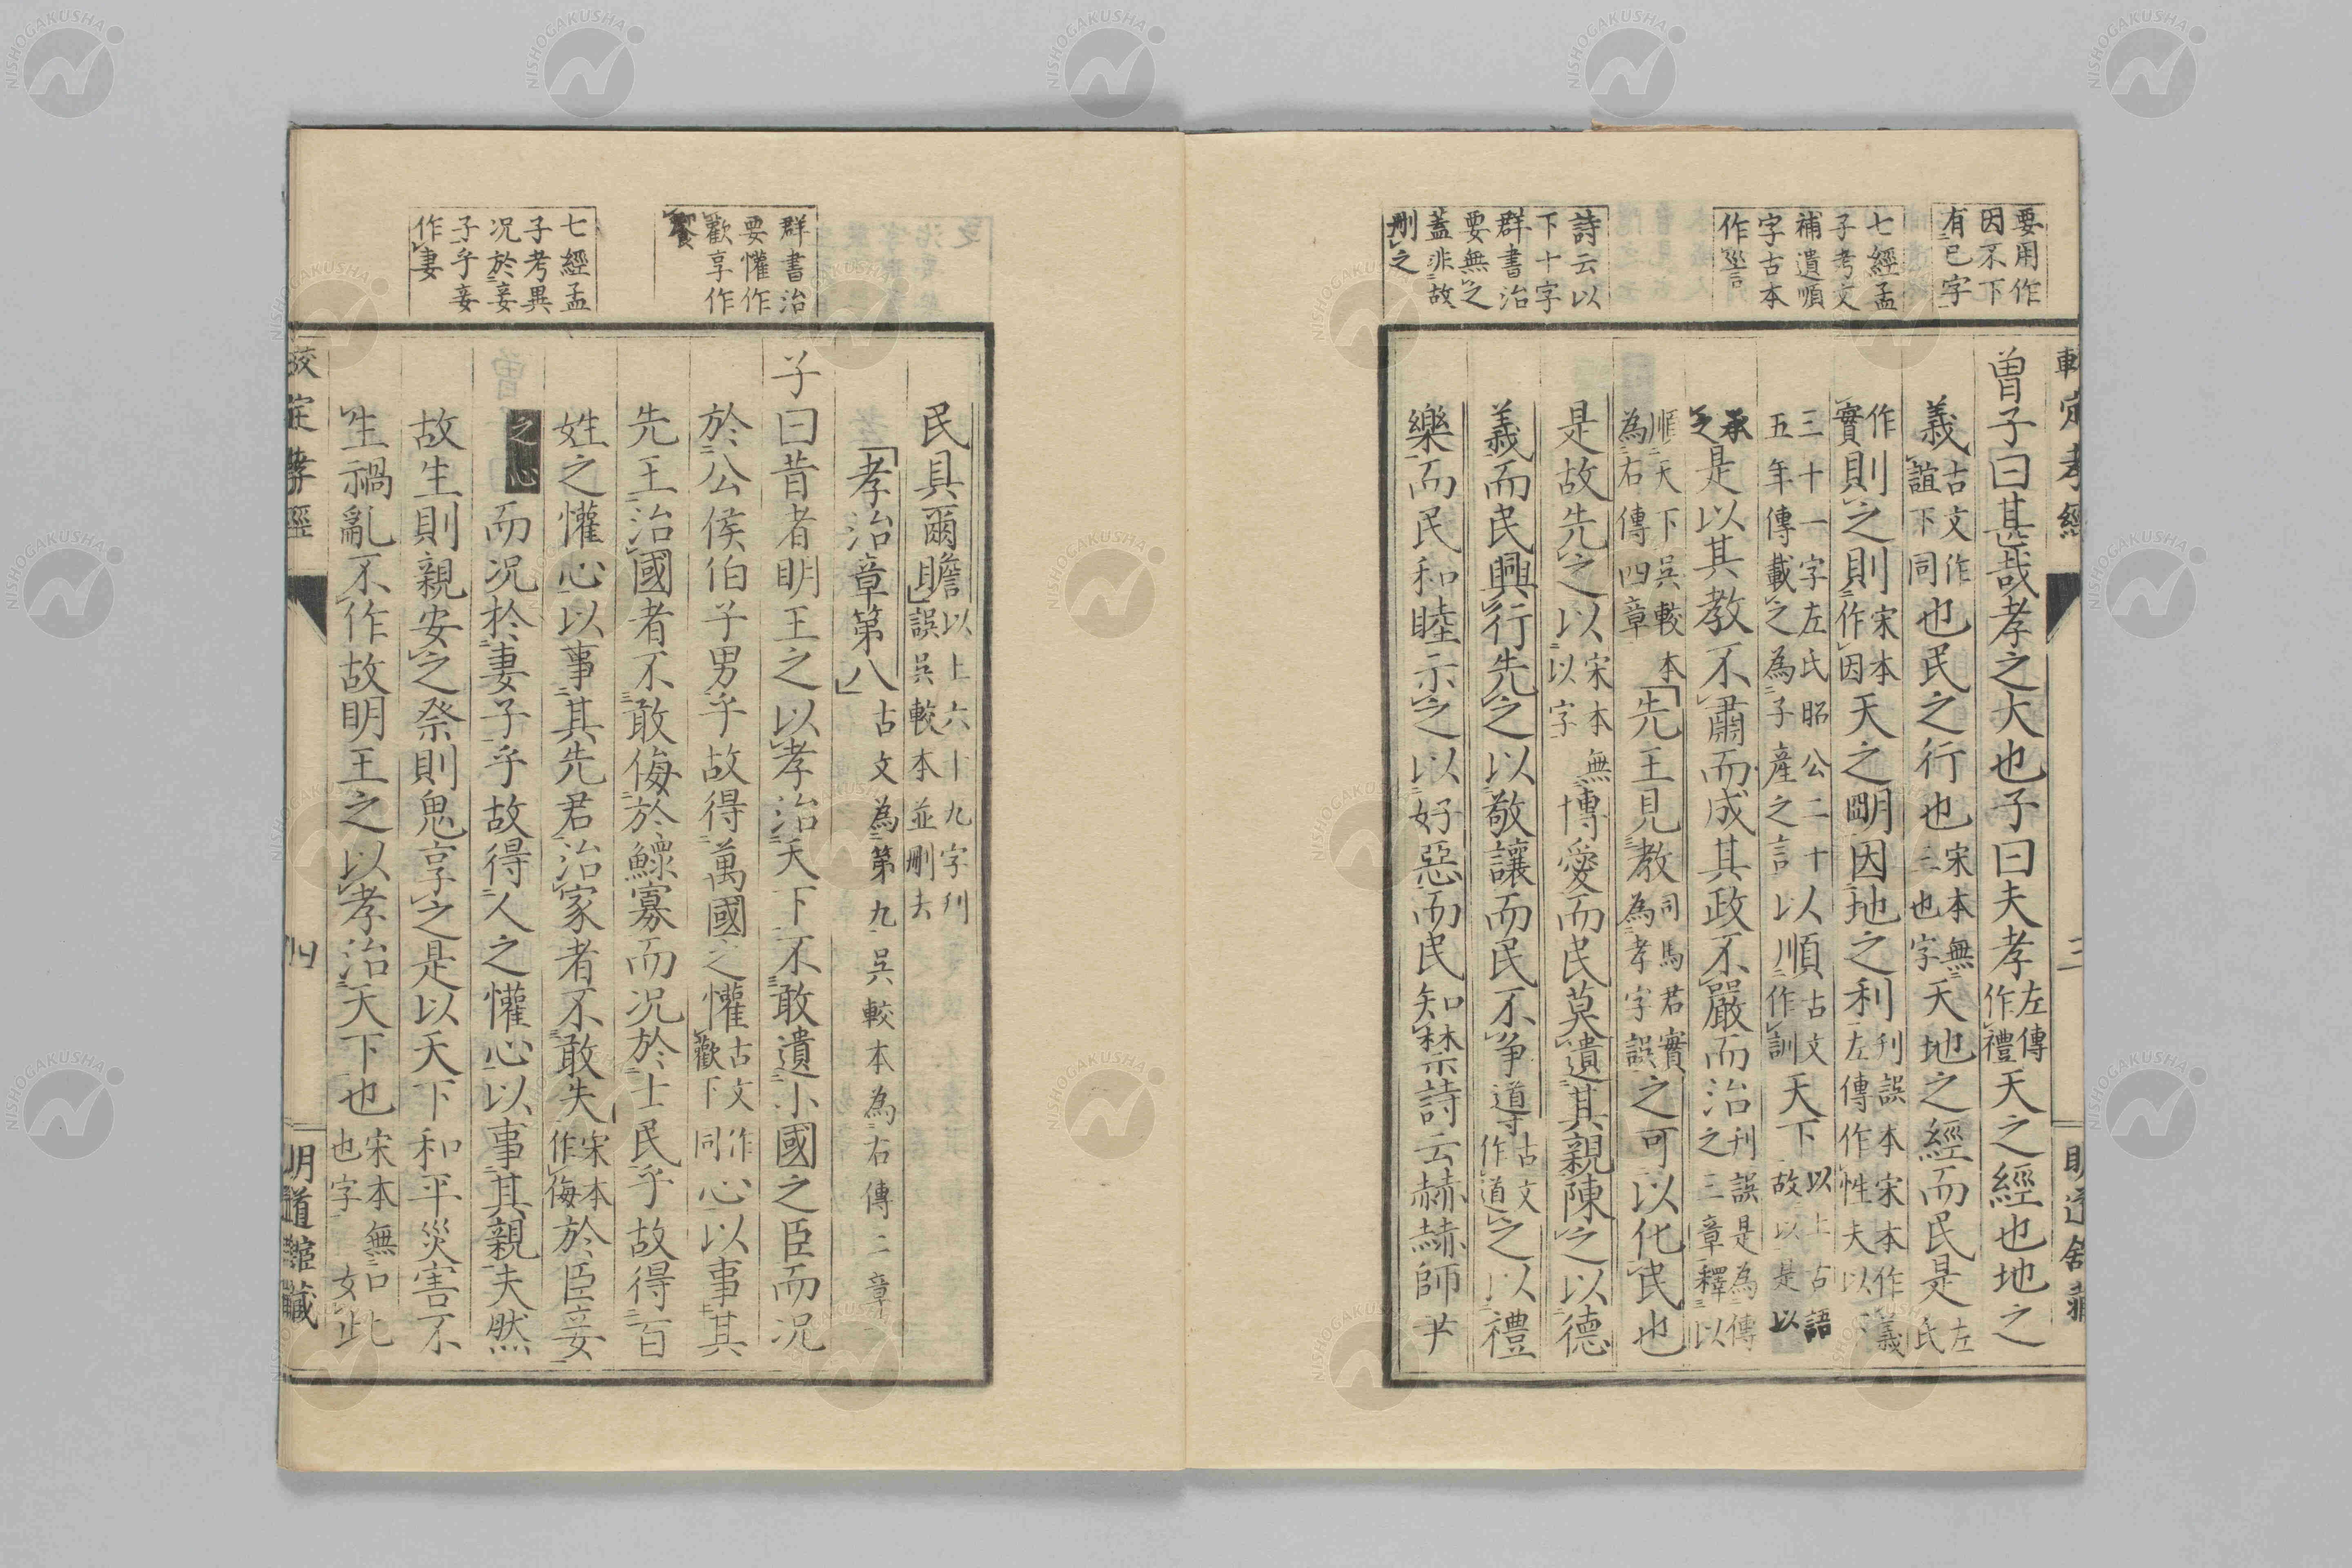 要用作
因不下
有已字
七經孟
子考文
補遺順
字古本
作巡言
詩云以
下十字
群書治
要無之
蓋非故
刪之
較定孝經
三
曾子曰甚哉孝之大也子曰夫孝左傳作禮天之經也地之
義古文作誼下同也民之行也宋本無三也字天地之經而民是左氏
作實則之則宋本作因天之明因地之利刊誤本宋本作義左傳作性夫以下
三十一字左氏昭公二十五年傳載之為子產之言以順古文作訓天下以上古語故以是以
承之是以其教不肅而成其政不嚴而治刊誤是為傳之三章釋以
順天下吳較本為右傳四章先王見教司馬君實為孝字誤之可以化民也
是故先之以宋本無以字博愛而民莫遺其親陳之以德
義而民興行先之以敬讓而民不爭道古文作道之以禮
樂而民和睦示之以好惡而民知禁詩云赫赫師尹
群書治
要懽作
歡享作
饗
七經孟
子考異
况於妾
子乎妾
作妻
民具爾瞻以上六十九字刊誤吳較本並刪去
孝治章第八古文為第九吳較本為右傳二章
子曰昔者明王之以孝治天下不敢遺小國之臣而况
於公侯伯子男乎故得萬國之懽古文作歡下同心以事其
先王治國者不敢侮於鰥寡而况於士民乎故得百
姓之懽心以事其先君治家者不敢失宋本作侮於臣妾
之心而况於妻子乎故得人之懽心以事其親夫然
故生則親安之祭則鬼享之是以天下和平災害不
生禍亂不作故明王之以孝治天下也宋本無也字如此
較定孝經
四
明道館藏